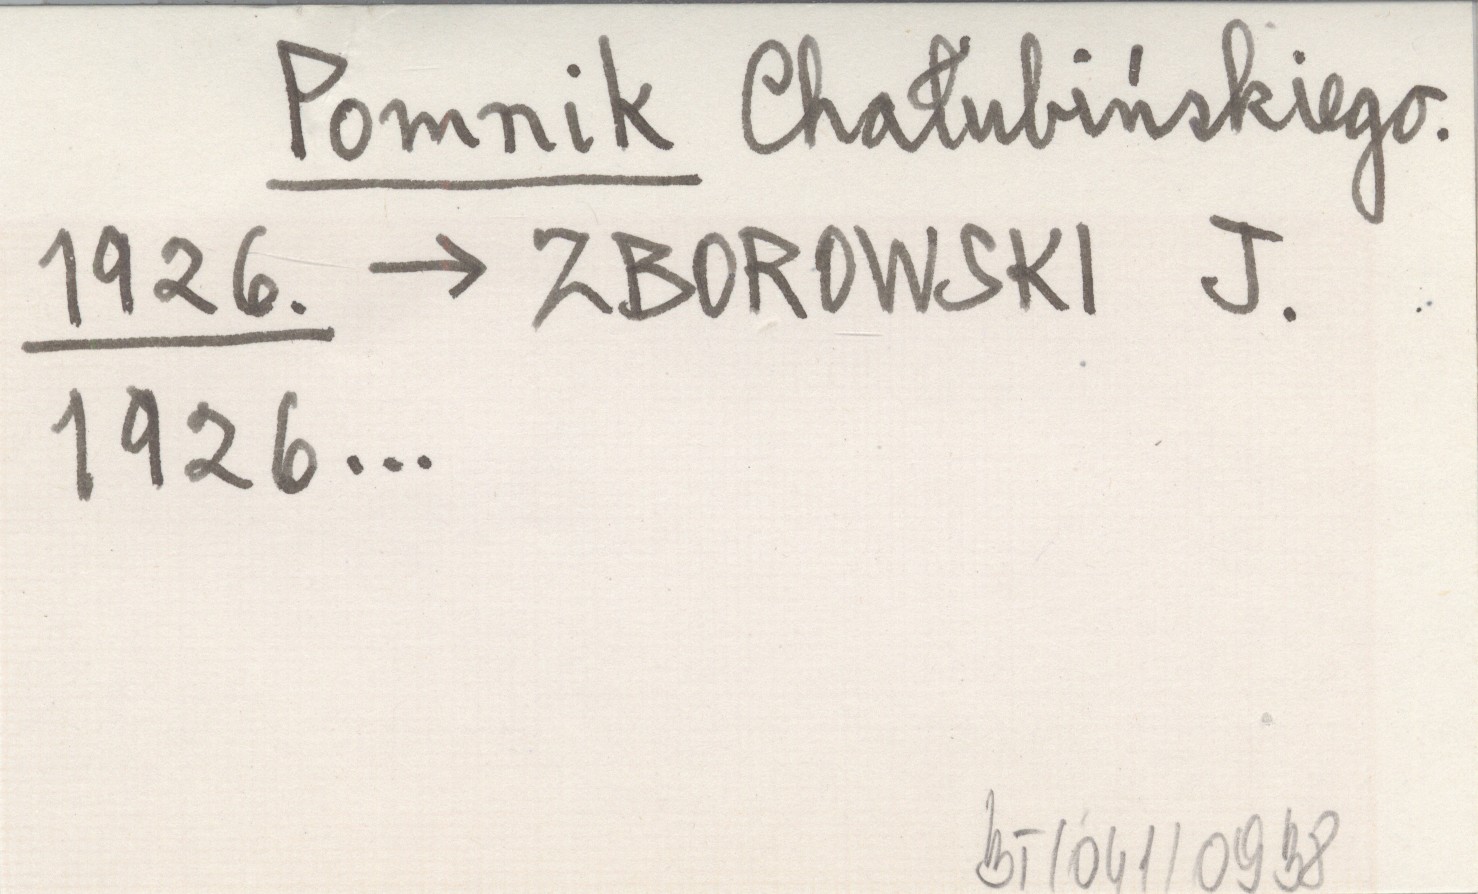 Pomnik Chałubińskiego.
1926. → ZBOROWSKI J.
1926...
BT/041/0938